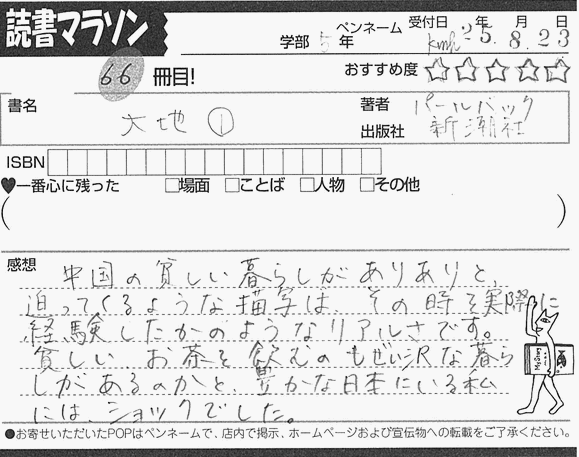 読書マラソン
学部 5年 ペンネーム kmh 受付日 25年 8月 23日
66冊目!
おすすめ度 ☆☆☆☆☆
書名 大地①
著者 パールバック
出版社 新潮社
ISBN
♥一番心に残った □場面 □ことば □人物 □その他
( )
感想 中国の貧しい暮らしがありありと、
迫ってくるような描写は、その時を実際に
経験したかのようなリアルさです。
貧しい、お茶を飲むのもぜい沢な暮ら
しがあるのかと、豊かな日本にいる私
には、ショックでした。
●お寄せいただいたPOPはペンネームで、店内で掲示、ホームページおよび宣伝物への転載をご了承ください。